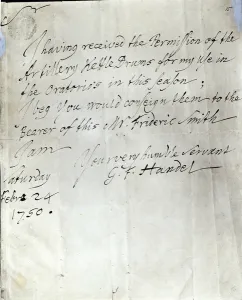 Sr
I having received the Permission of the
Artillery Kettle Drums for my use in
the Oratorio's in this season;
I beg you would consign them to the
Bearer of this Mr. Frideric Smith
I am
Your very humble servant
G. F. Handel
Saturday
Febr: 24
1750.